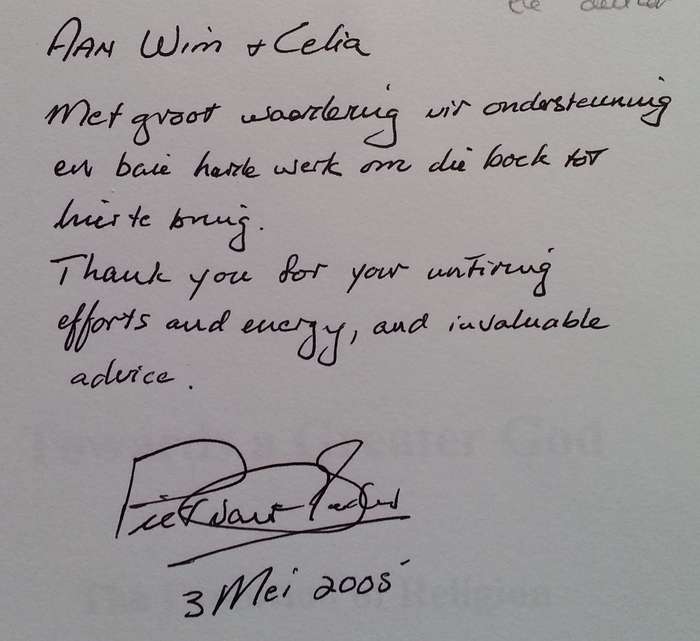 AAN Wim + Celia
Met groot waardering vir ondersteuning
en baie harde werk om die boek tot
hier te bring.
Thank you for your untiring
efforts and energy, and invaluable
advice.
Piet
3 Mei 2005
Towards a Greater God
The of Religion